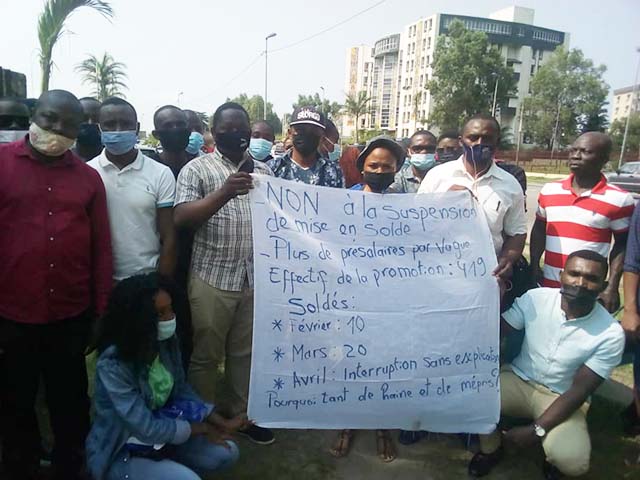 - NON à la suspension
de mise en solde
- Plus de présalaires par Vague
Effectif de la promotion : 419
Soldés :
* Février : 10
* Mars : 20
* Avril : Interruption sans explication
Pourquoi tant de haine et de mépris?